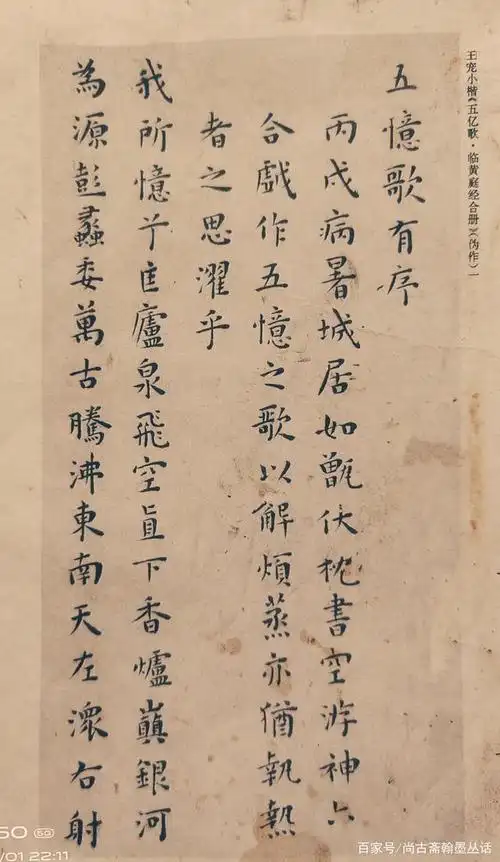 五憶歌有序
丙戌病暑城居如甑伏枕書空游神六
合戲作五憶之歌以解煩蒸亦猶執熱
者之思濯乎
我所憶兮匡廬泉飛空直下香爐巔銀河
為源彭蠡委萬古騰沸東南天左瀠右射
王宠小楷《五亿歌·临黄庭经合册》(伪作)一
50 5G
/01 22:11
百家号/尚古斋翰墨丛话